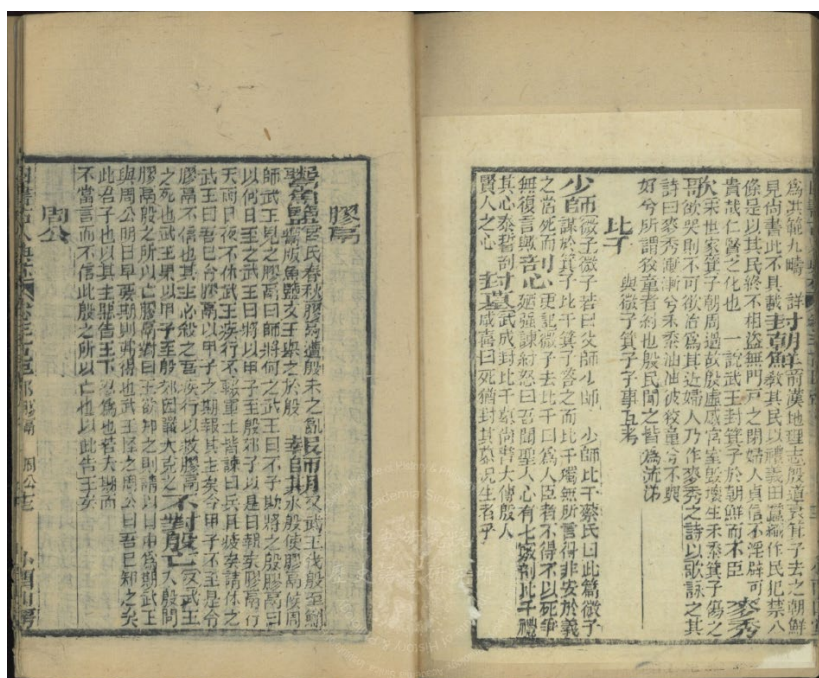 爲其範九疇 詳封朝鮮前漢地理志殷道衰箕子去之朝鮮
見尚書此不具載 教其民以禮義田蠶織作民犯禁八
條是以其民終不相盜無門戸之閉婦人貞信不淫辟可
貴哉仁賢之化也 一說武王封箕子於朝鮮而不臣 麥秀
歌宋世家箕子朝周過故殷虛感宮室毀壞生禾黍箕子傷之
哥欲哭則不可欲泣爲其近婦人乃作麥秀之詩以歌詠之其
詩曰麥秀漸漸兮禾黍油油彼狡童兮不與
好兮所謂狡童者紂也殷民聞之皆爲流涕
比干
與微子箕子事互考
少師微子微子若曰父師少師 少師比干蔡氏曰此篇微子
謀於箕子比干箕子答之而比干獨無所言得非安於義
之當死而 剖心史記微子去比干曰爲人臣者不得不以死爭
無復言歟 廼强諫紂怒曰吾聞聖人心有七竅剖比干觀
其心泰誓剖 封墓武成封比干墓尚書大傳殷人
賢人之心 咸喜曰死猶封其墓况生者乎
膠鬲
舉魚鹽 呂氏春秋膠鬲遭殷末之亂 報師期又武王伐殷至鮪
販魚鹽文王舉之於殷 水殷使膠鬲候周
師武王見之膠鬲曰師將何之武王曰不子欺將之殷膠鬲曰
以何日至之武王曰將以甲子至殷郊子以是日報矣膠鬲行
天雨日夜不休武王疾行不輟軍士皆諫曰兵且疲矣請休之
武王曰吾已令膠鬲以甲子之期報其主矣今甲子不至是令
膠鬲不信也其主必殺之吾疾行以救膠鬲
之死也武王果以甲子至殷郊因議大克之 不對殷亡又武王
入殷問
膠鬲殷之所以亡膠鬲對曰王欲知之則請以日中爲期武王
與周公明日早要期則弗得也武王怪之周公曰吾已知之矣
此君子也以其主惡告王不忍爲也若夫期而
不當言而不信此殷之所以亡也以此告王矣
周公